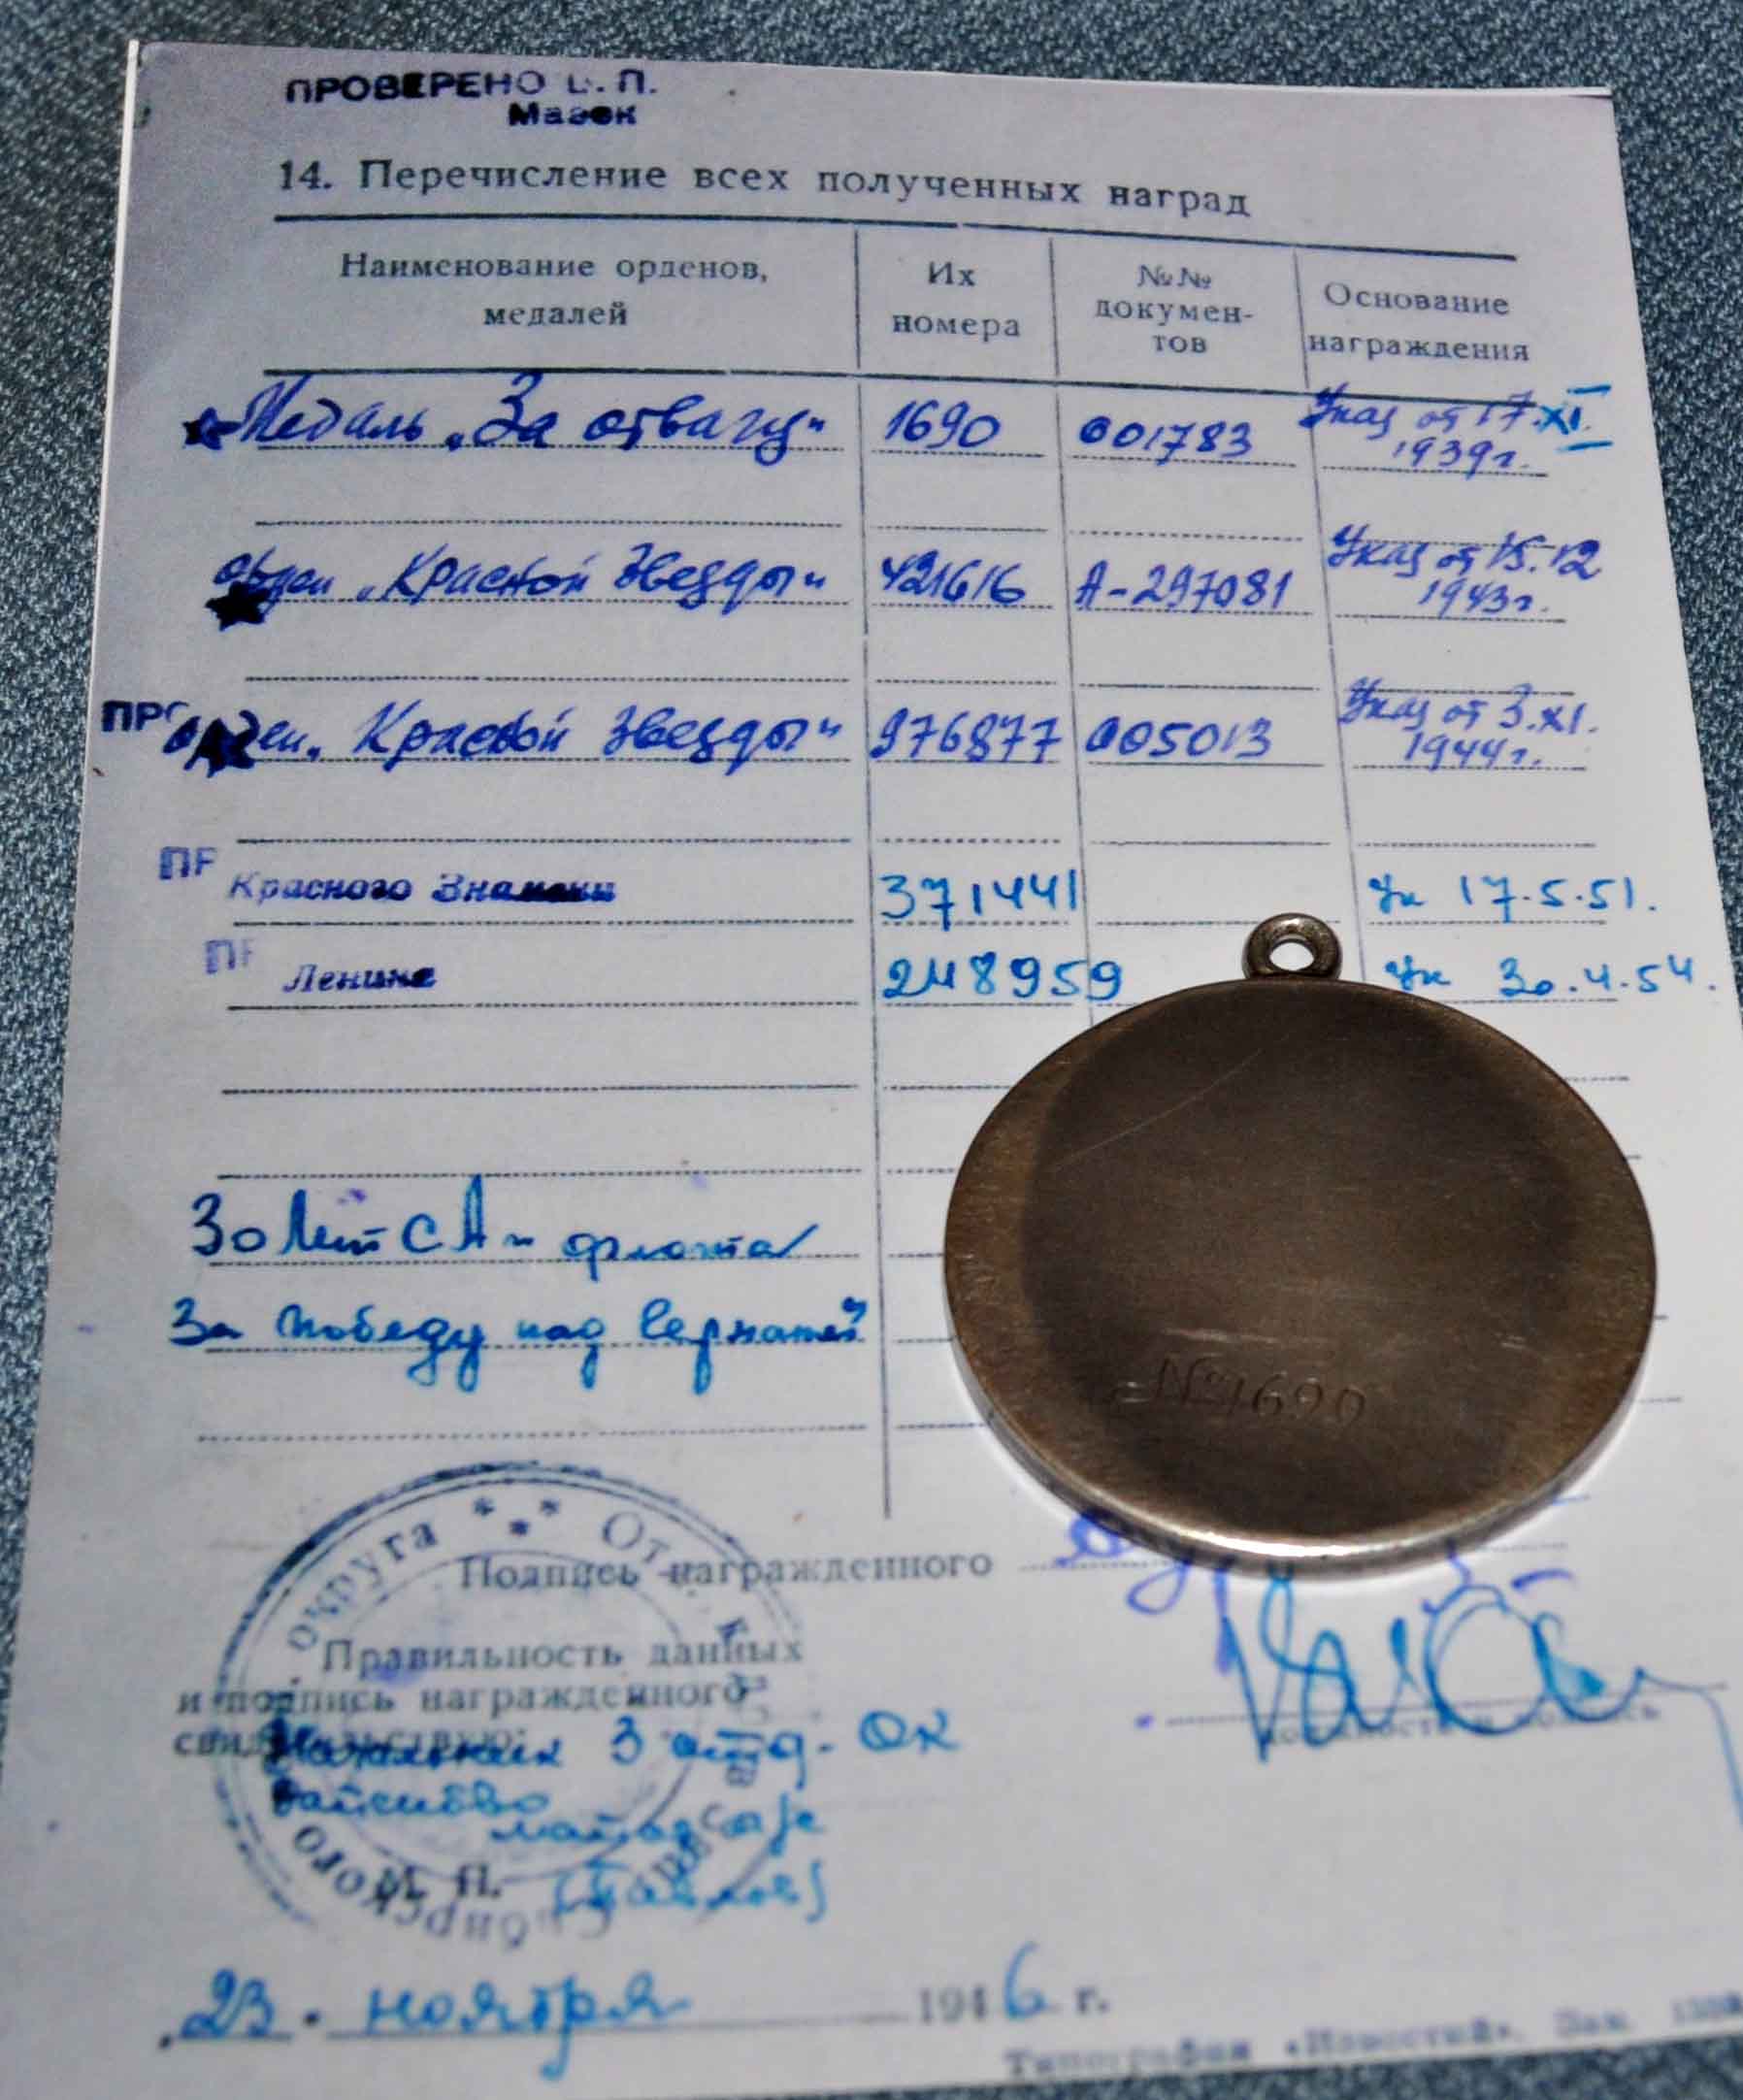 ПРОВЕРЕНО
14. Перечисление всех полученных наград
Наименование орденов,
медалей
Их
номера
№№
докумен-
тов
Основание
награждения
Медаль „За отвагу“ 1690 001783 Указ от 17.XI.
1939г.
орден „Красной Звезды“ 421616 А-297081 Указ от 15.12
1943г.
ПРО
орден „Красной Звезды“ 976877 005013 Указ от 3.XI.
1944г.
ПР
Красного Знамени 371441 Ук 17.5.51.
ПР
Ленина 248959 Ук 30.4.54.
30 лет СА и флота
За победу над Германией
№1690
Подпись награжденного
Правильность данных
и подпись награжденного
свидетельствую:
Начальник 3 отд. ОК
М. П.
округа * * * От
23. ноября 1946 г.
Типография «Известий». Зак.